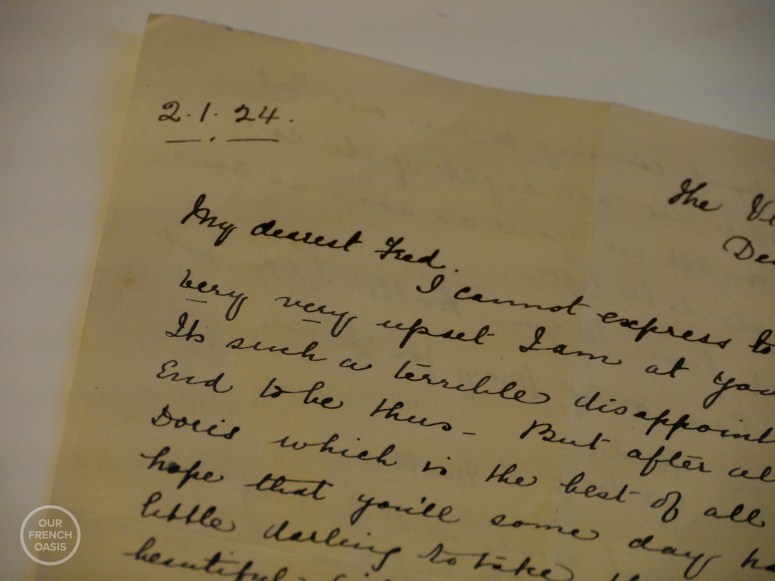 2.1.24.
The
My dearest Fred.
I cannot express to
very very upset I am at
Its such a terrible
End to be thus - But after
Doris which is the best of all
hope that you'll some day
little darling to take
beautiful
OUR
FRENCH
OASIS